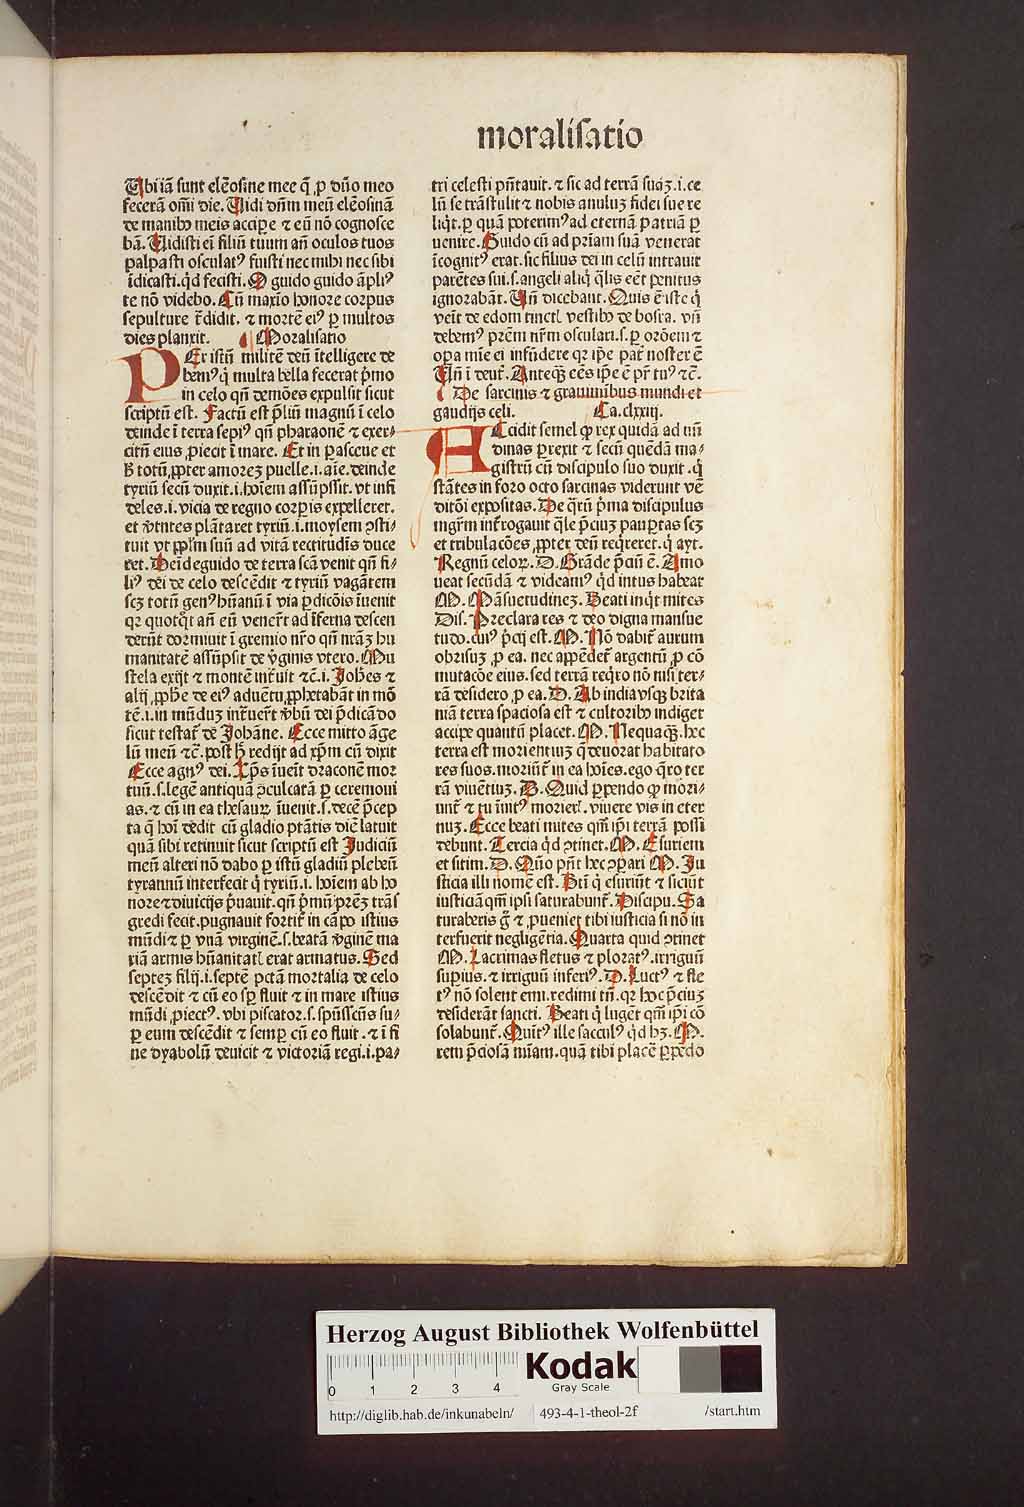 moralisatio
Ubi iā sunt elēosine mee q̄ ꝓ dn̄o meo
fecerā om̄i die. Uidi dn̄m meū elēosinā
de manibꝰ meis accipe ⁊ eū nō cognosce
bā. Uidisti ei filiū tuum an̄ oculos tuos
palpasti osculatꝰ fuisti nec mihi nec sibi
īdicasti. qd fecisti. O guido guido āpliꝰ
te nō videbo. Cū maxīo honore corpus
sepulture t̄didit. ⁊ mortē eiꝰ ꝑ multos
dies planxit. Moralisatio
PEr istū militē deū ītelligere de
bemꝰ q̇ multa bella fecerat pͥmo
in celo qn̄ demōes expulsit sicut
scriptū est. Factū est p̄liū magnū ī celo
deinde ī terra sepiꝰ qn̄ pharaonē ⁊ exer-
citū eius ꝓiecit ī mare. Et in pasceue et
totū ꝓpter amorez puelle .i. aīe. deinde
tyriū secū duxit .i. hoīem assūpsit. vt infi
deles .i. vicia de regno corꝑis expelleret.
et v̓tutes plātaret tyriū .i. moysem ꝯsti-
tuit vt pp̄lm suū ad vitā rectitudīs duce
ret. Deīde guido de terra scā venit qn̄ fi-
liꝰ dei de celo descēdit ⁊ tyriū vagātem
scꝫ totū genꝰ hūanū ī via ꝑdicōis īuenit
qr quotq̇t an̄ eū venerūt ad īferna descen
derūt dormiuit ī gremio nr̄o qn̄ nrāꝫ hu
manitatē assūpsit de v̓ginis vtero. Mu
stela exijt ⁊ montē intͣuit ⁊c̄ .i. Johēs ⁊
alij ꝓphe de eiꝰ aduētu ꝓphetabāt in mō
tē .i. in mūduꝫ intͣuer̄t v̓bū dei p̄dicādo
sicut testat̄ de Johāne. Ecce mitto āge
lū meū ⁊c̄. post h̄ redijt ad xp̄m cū dixit
Ecce agnꝰ dei. Xp̄s īueīt draconē mor
tuū .s. legē antiquā ꝯculcatā ꝑ ceremoni
as. ⁊ cū in ea thesauꝝ īuenit .s. decē p̄cep
ta q̄ hoī dedit cū gladio ptātis diē latuit
quā sibi retinuit sicut scriptū est Judiciū
meū alteri nō dabo ꝑ istū gladiū plebeū
tyrannū interfecit q̇ tyriū .i. hoīem ab ho
nore ⁊ diuicijs pͥuauit. qn̄ pͥmū prēꝫ trās
gredi fecit. pugnauit fortit̄ in cāpo istius
mūdi ⁊ ꝑ vnā virginē .s. beatā v̓ginē ma
riā armis hūanitatꝭ erat armatus. Sed
septeꝫ filij .i. septē pctā mortalia de celo
descēdit ⁊ cū eo sꝑ fluit ⁊ in mare istius
mūdi ꝓiectꝰ. vbi piscator .s. spūssctūs su-
ꝑ eum descēdit ⁊ semꝑ cū eo fluit . ⁊ ī fi
ne dyabolū deuicit ⁊ victoriā regi .i. pa-
tri celesti pn̄tauit. ⁊ sic ad terrā suāꝫ .i. ce
lū se trāstulit ⁊ nobis anuluꝫ fidei sue re
liq̇t. ꝑ quā poterimꝰ ad eternā patriā ꝑ
uenire. Guido cū ad pr̄iam suā venerat
īcognitꝰ erat. sic filius dei in celū intrauit
parētes sui .s. angeli aliq̇ q̄lis eēt penitus
ignorabāt. Un̄ dicebant. Quis ē iste q̇
veīt de edom tinctꝭ vestibꝰ de bosra. vn̄
debemꝰ prēm nr̄m osculari .s. ꝑ orōem ⁊
oꝑa mīe ei infūdere qr ip̄e pat̄ noster ē
Un̄ ī deut̄. Anteq̄ꝫ eēs ip̄e ē pr̄ tuꝰ ⁊c̄.
De sarcinis ⁊ grauinibus mundi et
gaudijs celi. Ca. clxxiij.
ACcidit semel ꝙ rex quidā ad nū
dinas ꝑrexit ⁊ secū quēdā ma-
gistrū cū discipulo suo duxit. q̇
stātes in foro octo sarcinas viderunt vē
ditōi expositas. De q̄rū pͥma discipulus
mgr̄m int̄rogauit q̄le p̄ciuꝫ pauꝑtas scꝫ
et tribulacōes ꝓpter deū req̇reret. q̇ ayt.
Regnū celoꝝ. D. Grāde p̄ciū ē. Amo
ueat secūdā ⁊ videamꝰ q̇d intus habeat
M. Māsuetudineꝫ. Beati inq̇t mites
Dis. Preclara res ⁊ deo digna mansue
tudo. cuiꝰ p̄cij est. M. Nō dabit̄ aurum
obrisuꝫ ꝓ ea. nec appēdet̄ argentū ꝓ cō
mutacōe eius. sed terrā req̇ro nō nisi ter-
rā desidero ꝓ ea. D. Ab india vsqꝫ brita
niā terra spaciosa est ⁊ cultoribꝰ indiget
accipe quantū placet. M. Nequaqꝫ. hec
terra est morientiuꝫ q̄ deuorat habitato
res suos. moriūt̄ in ea hoīes. ego q̄ro ter
rā viuētiuꝫ. D. Quid ꝑpendo ꝙ mori-
unt̄ ⁊ tu īuitꝰ morierꝭ. viuere vis in eter
nuꝫ. Ecce beati mites qm̄ ip̄i terrā possi
debunt. Tercia q̇d ꝯtinet. M. Esuriem
et sitim. D. Qūo pn̄t hec ꝯꝑari M. Ju
sticia illi nomē est. Btī q̇ esuriūt ⁊ siciūt
iusticiā qm̄ ipsi saturabunt̄. Discipu. Sa
turaberis gͦ ⁊ ꝓueniet tibi iusticia si nō in
terfuerit negligētia. Quarta quid ꝯtinet
M. Lacrimas fletus ⁊ ploratꝰ. irriguū
suꝑius. ⁊ irriguū inferiꝰ. D. Luctꝰ ⁊ fle
tꝰ nō solent emi. redimi tn̄. qr hoc p̄ciuꝫ
desiderāt sancti. Beati q̇ lugēt qm̄ ip̄i cō
solabunt̄. Quītꝰ ille sacculꝰ q̇d hꝫ. M.
rem p̄ciosā mīam. quā tibi placē ꝑpēdo
Herzog August Bibliothek Wolfenbüttel
0 1 2 3 4
Kodak
Gray Scale
http://diglib.hab.de/inkunabeln/ 493-4-1-theol-2f /start.htm